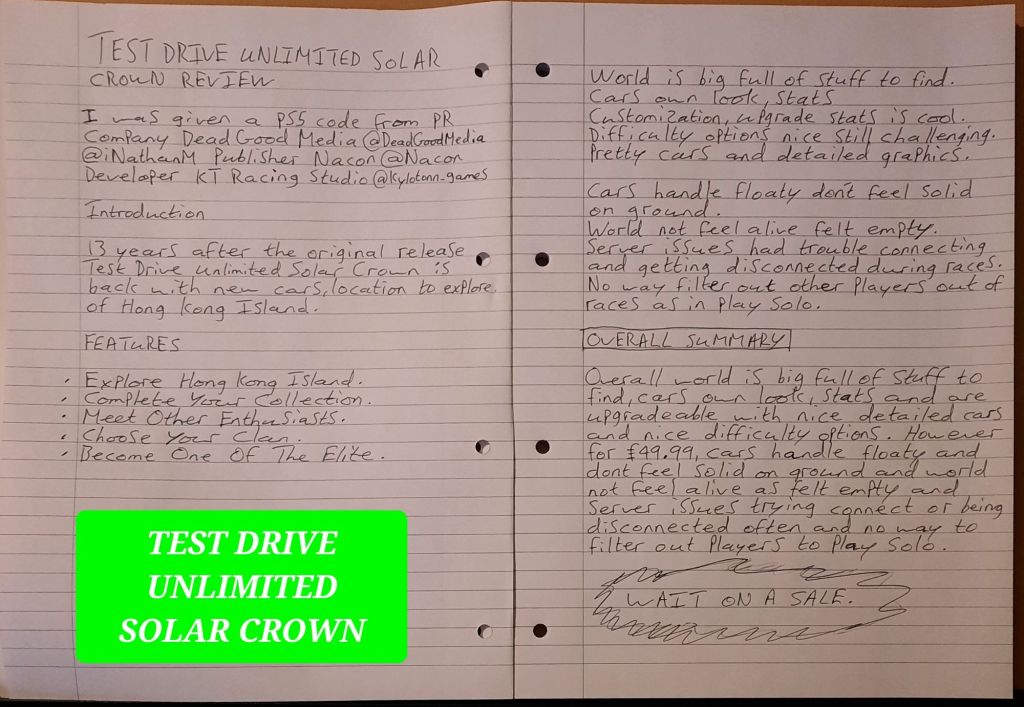 TEST DRIVE UNLIMITED SOLAR
CROWN REVIEW
I was given a PS5 code from PR
Company Dead Good Media @DeadGoodMedia
@iNathanM Publisher Nacon @Nacon
Developer KT Racing Studio @kylotonn_games
Introduction
13 years after the original release
Test Drive Unlimited Solar Crown is
back with new cars, location to explore
of Hong Kong Island.
FEATURES
• Explore Hong Kong Island.
• Complete Your Collection.
• Meet Other Enthusiasts.
• Choose Your Clan.
• Become One Of The Elite.
TEST DRIVE
UNLIMITED
SOLAR CROWN
World is big full of stuff to find.
Cars own look, stats
Customization, upgrade stats is cool.
Difficulty options nice still challenging.
Pretty cars and detailed graphics.
Cars handle floaty don't feel solid
on ground.
World not feel alive felt empty.
Server issues had trouble connecting
and getting disconnected during races.
No way filter out other players out of
races as in play solo.
OVERALL SUMMARY
Overall world is big full of stuff to
find, cars own look, stats and are
upgradeable with nice detailed cars
and nice difficulty options. However
for £49.99, cars handle floaty and
dont feel solid on ground and world
not feel alive as felt empty and
Server issues trying connect or being
disconnected often and no way to
filter out players to play solo.
WAIT ON A SALE.